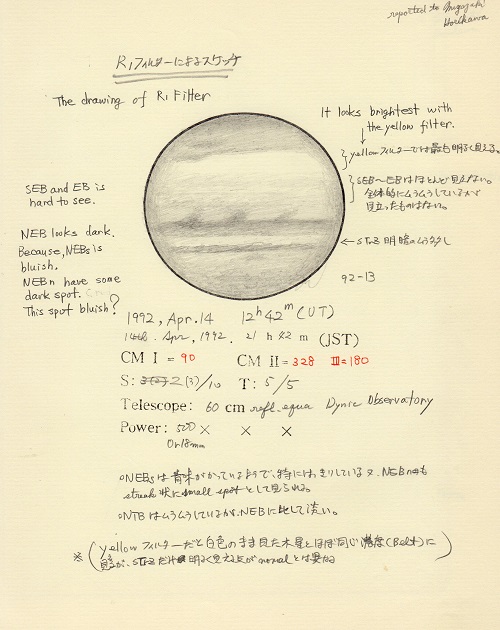 reported to Miyazaki
Horikawa
R1フィルターによるスケッチ
The drawing of R1 Filter
It looks brightest with
the yellow filter.
yellowフィルターでは最も明るく見える。
SEB〜EBはほとんど見えない。
全体的にムラムラしているが
目立ったものはない。
SEB and EB is
hard to see.
NEB looks dark.
Because, NEBs is
bluish.
NEBn have some
dark spot.
This spot bluish?
← STrZ 明暗のムラムラ
92-13
1992, Apr. 14 12h 42m (UT)
14th. Apr, 1992. 21 h 42 m (JST)
CM I = 90 CM II = 328 III=180
S: 2 (3)/10 T: 5/5
Telescope: 60 cm refl. equa Dynic Observatory
Power: 500 × × ×
Or18mm
○NEBsは青味がかっているようで、特にはっきりしている
streak状にsmall spotとして見られる。
○NTBはムラムラしているが、NEBに比して淡い。
※(yellowフィルターだと白色のまま見た木星とほぼ同じ濃度(Belt)に
見えるが、STrZだけ明るく見える点がnormalとは異なる